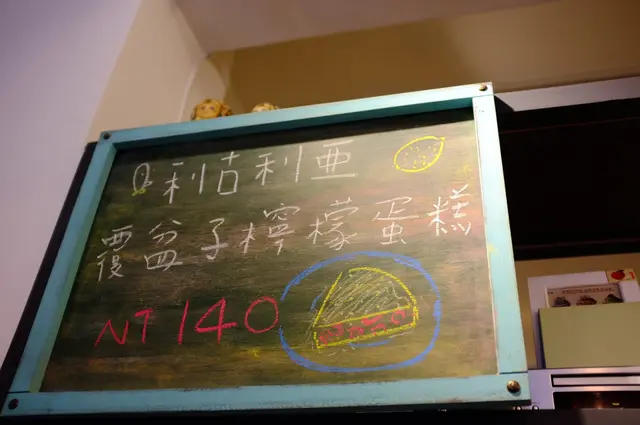 利古利亜
覆盆子檸檬蛋糕
NT 140